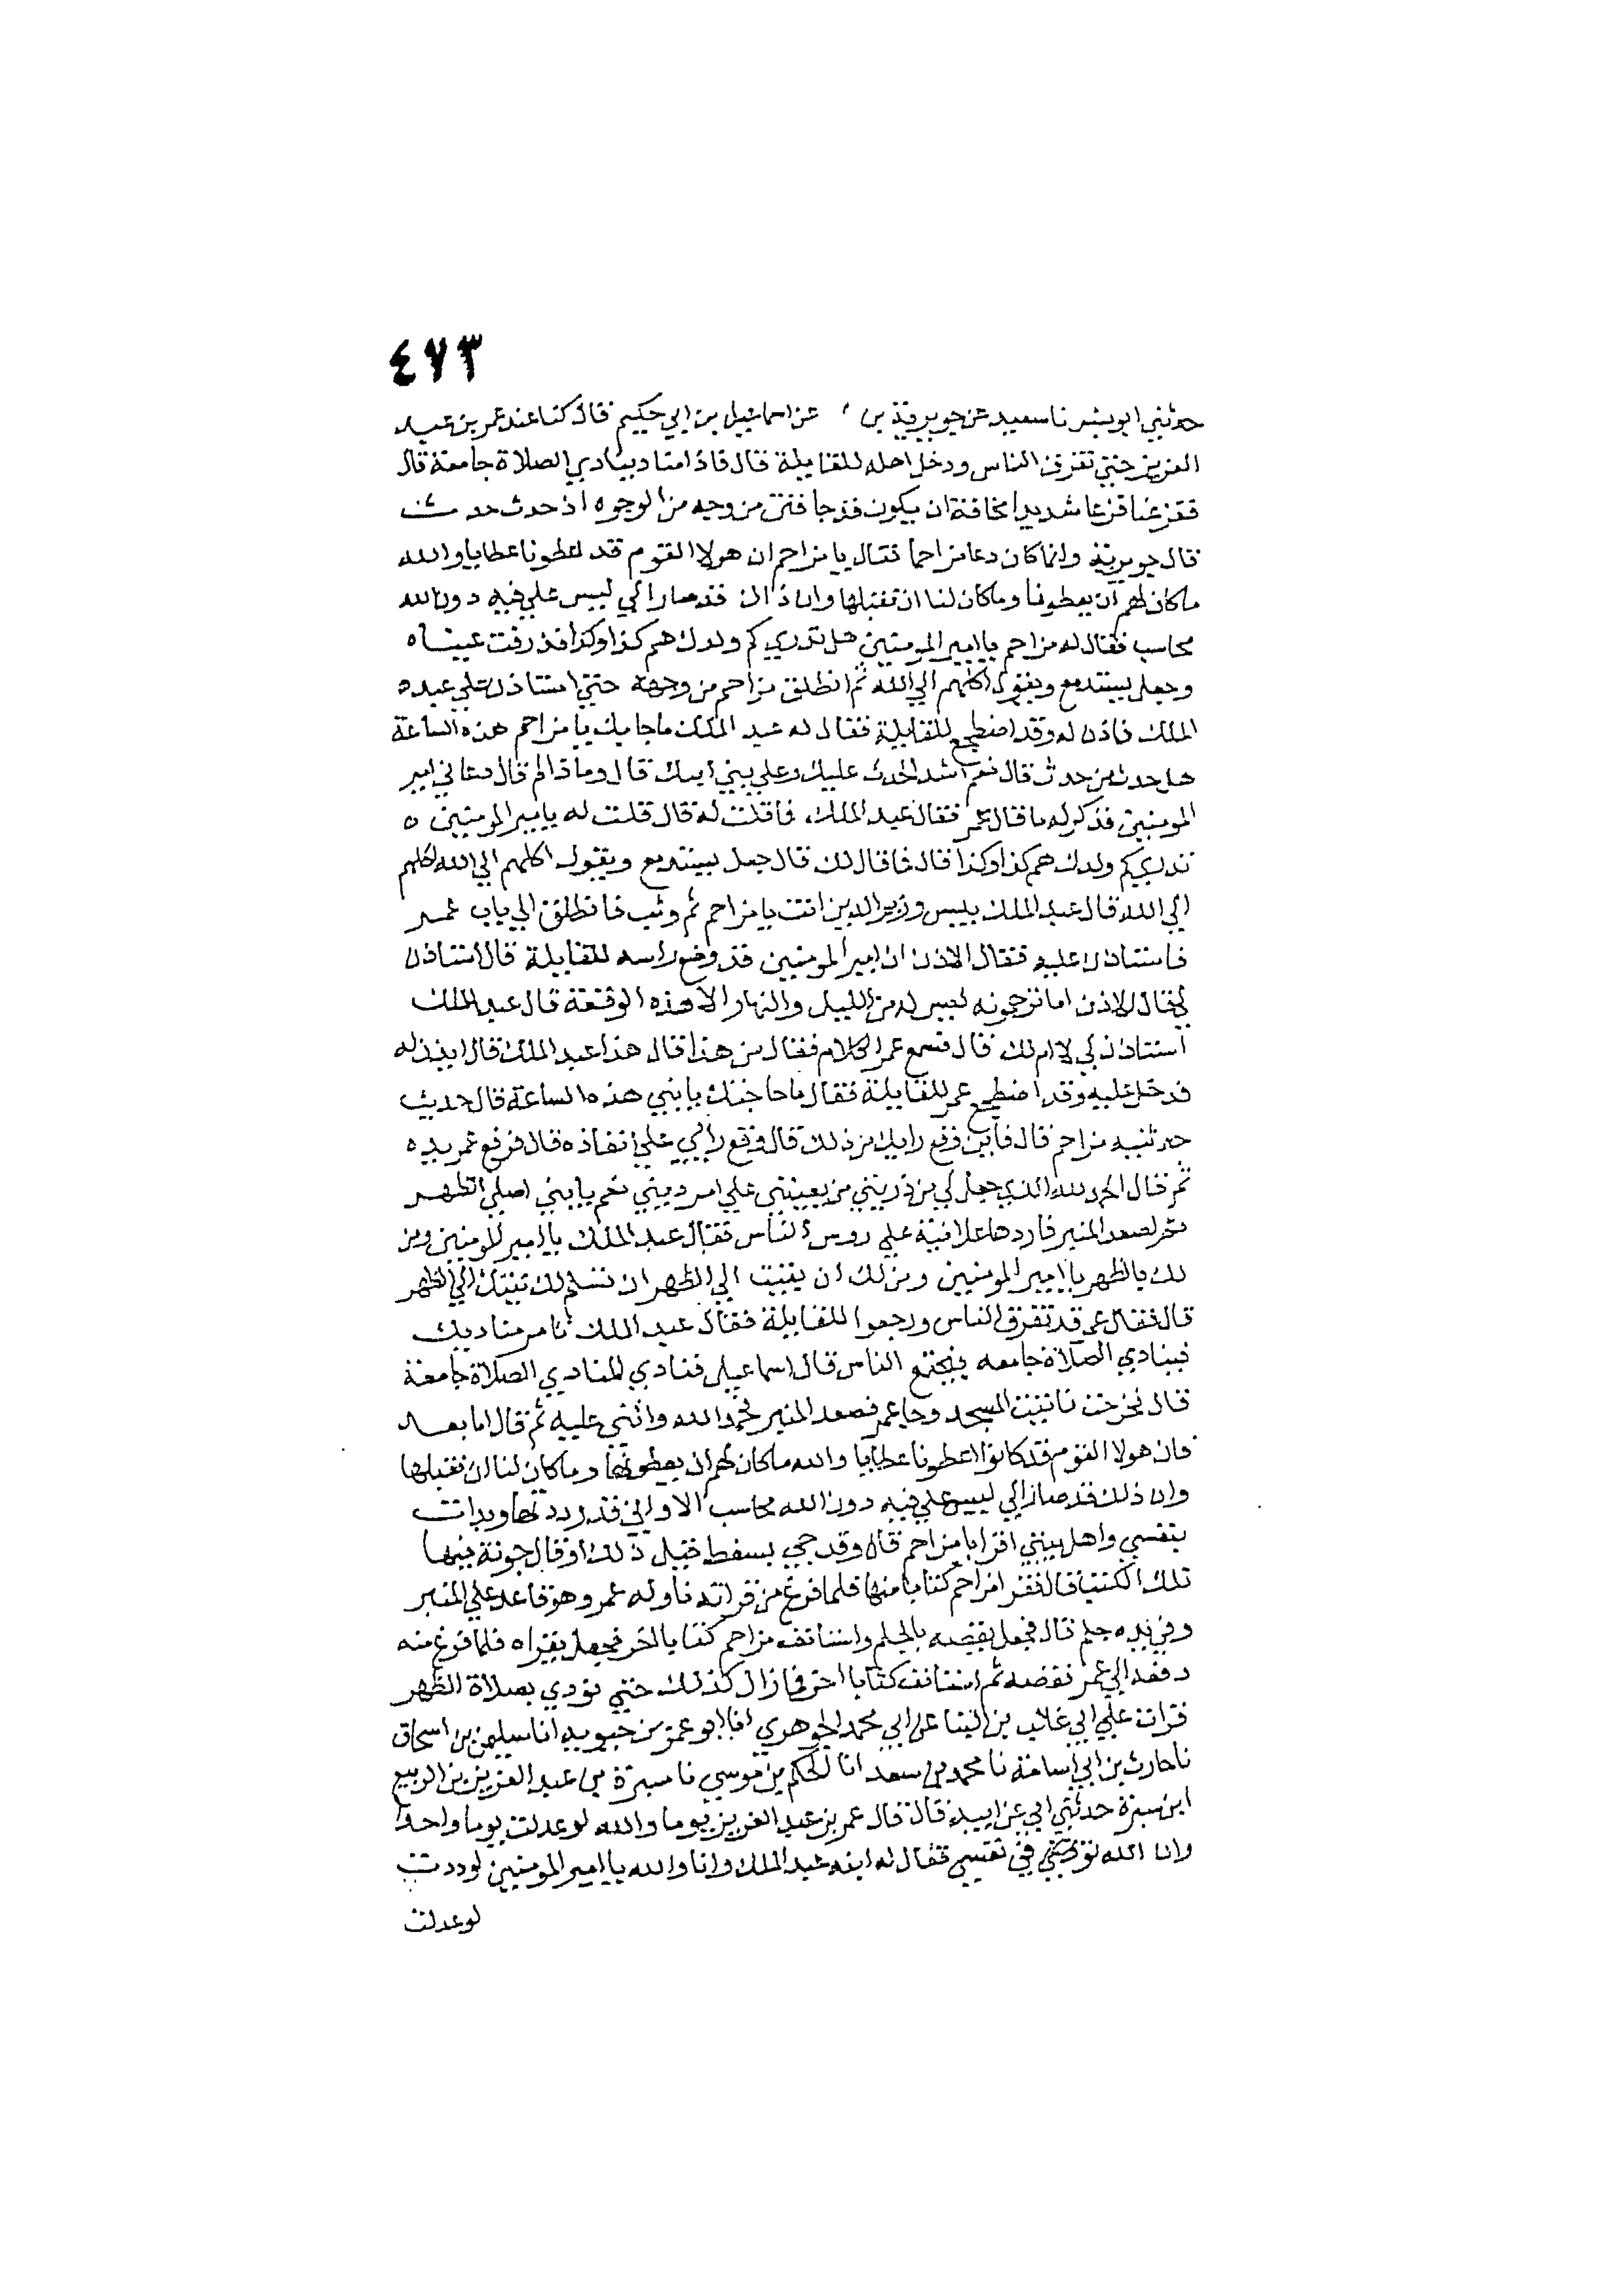 ٤٧٣
حدثني ابو بشر نا سعيد عن جويرية بن عن اسماعيل بن ابي حكيم قال كنا عند عمر بن عبد
العزيز حتي تفرق الناس ودخل اهله للقايلة قال فاذا مناد ينادي الصلاة جامعة قال
ففزعنا فزعا شديدا مخافة ان يكون قد جا فتق من وجه من الوجوه او حدث حدث
قال جويرية وانما كان دعا مزاحما فقال يا مزاحم ان هولا القوم قد اعطونا عطايا والله
ما كان لهم ان يعطونا وما كان لنا ان نقبلها وان ذلك قد صار الي ليس علي فيه دون الله
محاسب فقال له مزاحم يا امير المومنين هل تدري كم ولدك هم كذا وكذا فذرفت عيناه
وجعل يستدمع ويقول اكلهم الي الله ثم انطلق مزاحم من وجهه حتي استاذن علي عبد
الملك فاذن له وقد اضطجع للقايلة فقال له عبد الملك ما جا بك يا مزاحم هذه الساعة
هل حدث من حدث قال نعم اشد الحدث عليك وعلي بني ابيك قال وما ذا لم قال دعاني امير
المومنين فذكر له ما قال عمر فقال عبد الملك فما قلت له قال قلت له يا امير المومنين
تدري كم ولدك هم كذا وكذا قال فما قال لك قال جعل يستدمع ويقول اكلهم الي الله اكلهم
الي الله قال عبد الملك بيس وزير الدين انت يا مزاحم ثم وثب فانطلق الي باب عمر
فاستاذن عليه فقال الاذن ان امير المومنين قد وضع راسه للقايلة قال استاذن
لي فقال الاذن اما ترحمونه ليس له من الليل والنهار الا هذه الوقعة قال عبد الملك
استاذن لي لا ام لك قال فسمع عمر الكلام فقال من هذا قال هذا عبد الملك قال ايذن له
فدخل عليه وقد اضطجع عمر للقايلة فقال ما حاجتك يا بني هذه الساعة قال حديث
حدثنيه مزاحم قال فاين وقع رايك من ذلك قال وقع رايي علي انفاذه قال فرفع عمر يديه
ثم قال الحمد لله الذي جعل لي من ذريتي من يعينني علي امر ديني نعم يا بني اصلي الظهر
ثم اصعد المنبر فاردها علانية علي روس الناس فقال عبد الملك يا امير المومنين ومن
لك بالظهر يا امير المومنين ومن لك ان بقيت الي الظهر ان تسلم لك نيتك الي الظهر
قال فقال عمر قد تفرق الناس ورجعوا للقايلة فقال عبد الملك تامر مناديك
فينادي الصلاة جامعه فيجتمع الناس قال اسماعيل فنادي المنادي الصلاة جامعة
قال فخرجت فاتيت المسجد وجا عمر فصعد المنبر فحمد الله واثني عليه ثم قال اما بعد
فان هولا القوم قد كانوا اعطونا عطايا والله ما كان لهم ان يعطوناها وما كان لنا ان نقبلها
وان ذلك قد صار الي ليس علي فيه دون الله محاسب الا واني قد رددتها وبدات
بنفسي واهل بيتي اقرا يا مزاحم قال وقد جي بسفط قبل ذلك او قال جونة فيها
تلك الكتب قال فقرا مزاحم كتابا منها فلما فرغ من قراته ناوله عمر وهو قاعد علي المنبر
وفي يده جلم قال فجعل يقصه بالجلم واستانف مزاحم كتابا اخر فجعل يقراه فلما فرغ منه
دفعه الي عمر فقصه ثم استانف كتابا اخر فما زال كذلك حتي نودي بصلاة الظهر
قرات علي ابي غالب بن البنا عن ابي محمد الجوهري انا ابو عمر بن حيويه انا سليمن بن اسحاق
نا حارث بن ابي اسامة نا محمد بن سعد انا الحكم بن موسي نا سبرة بن عبد العزيز بن الربيع
ابن سبرة حدثني ابي عن ابيه قال قال عمر بن عبد العزيز يوما والله لوددت لو عدلت يوما واحدا
وان الله توفي في نفسي فقال له ابنه عبد الملك وانا والله يا امير المومنين لوددت
لو عدلت